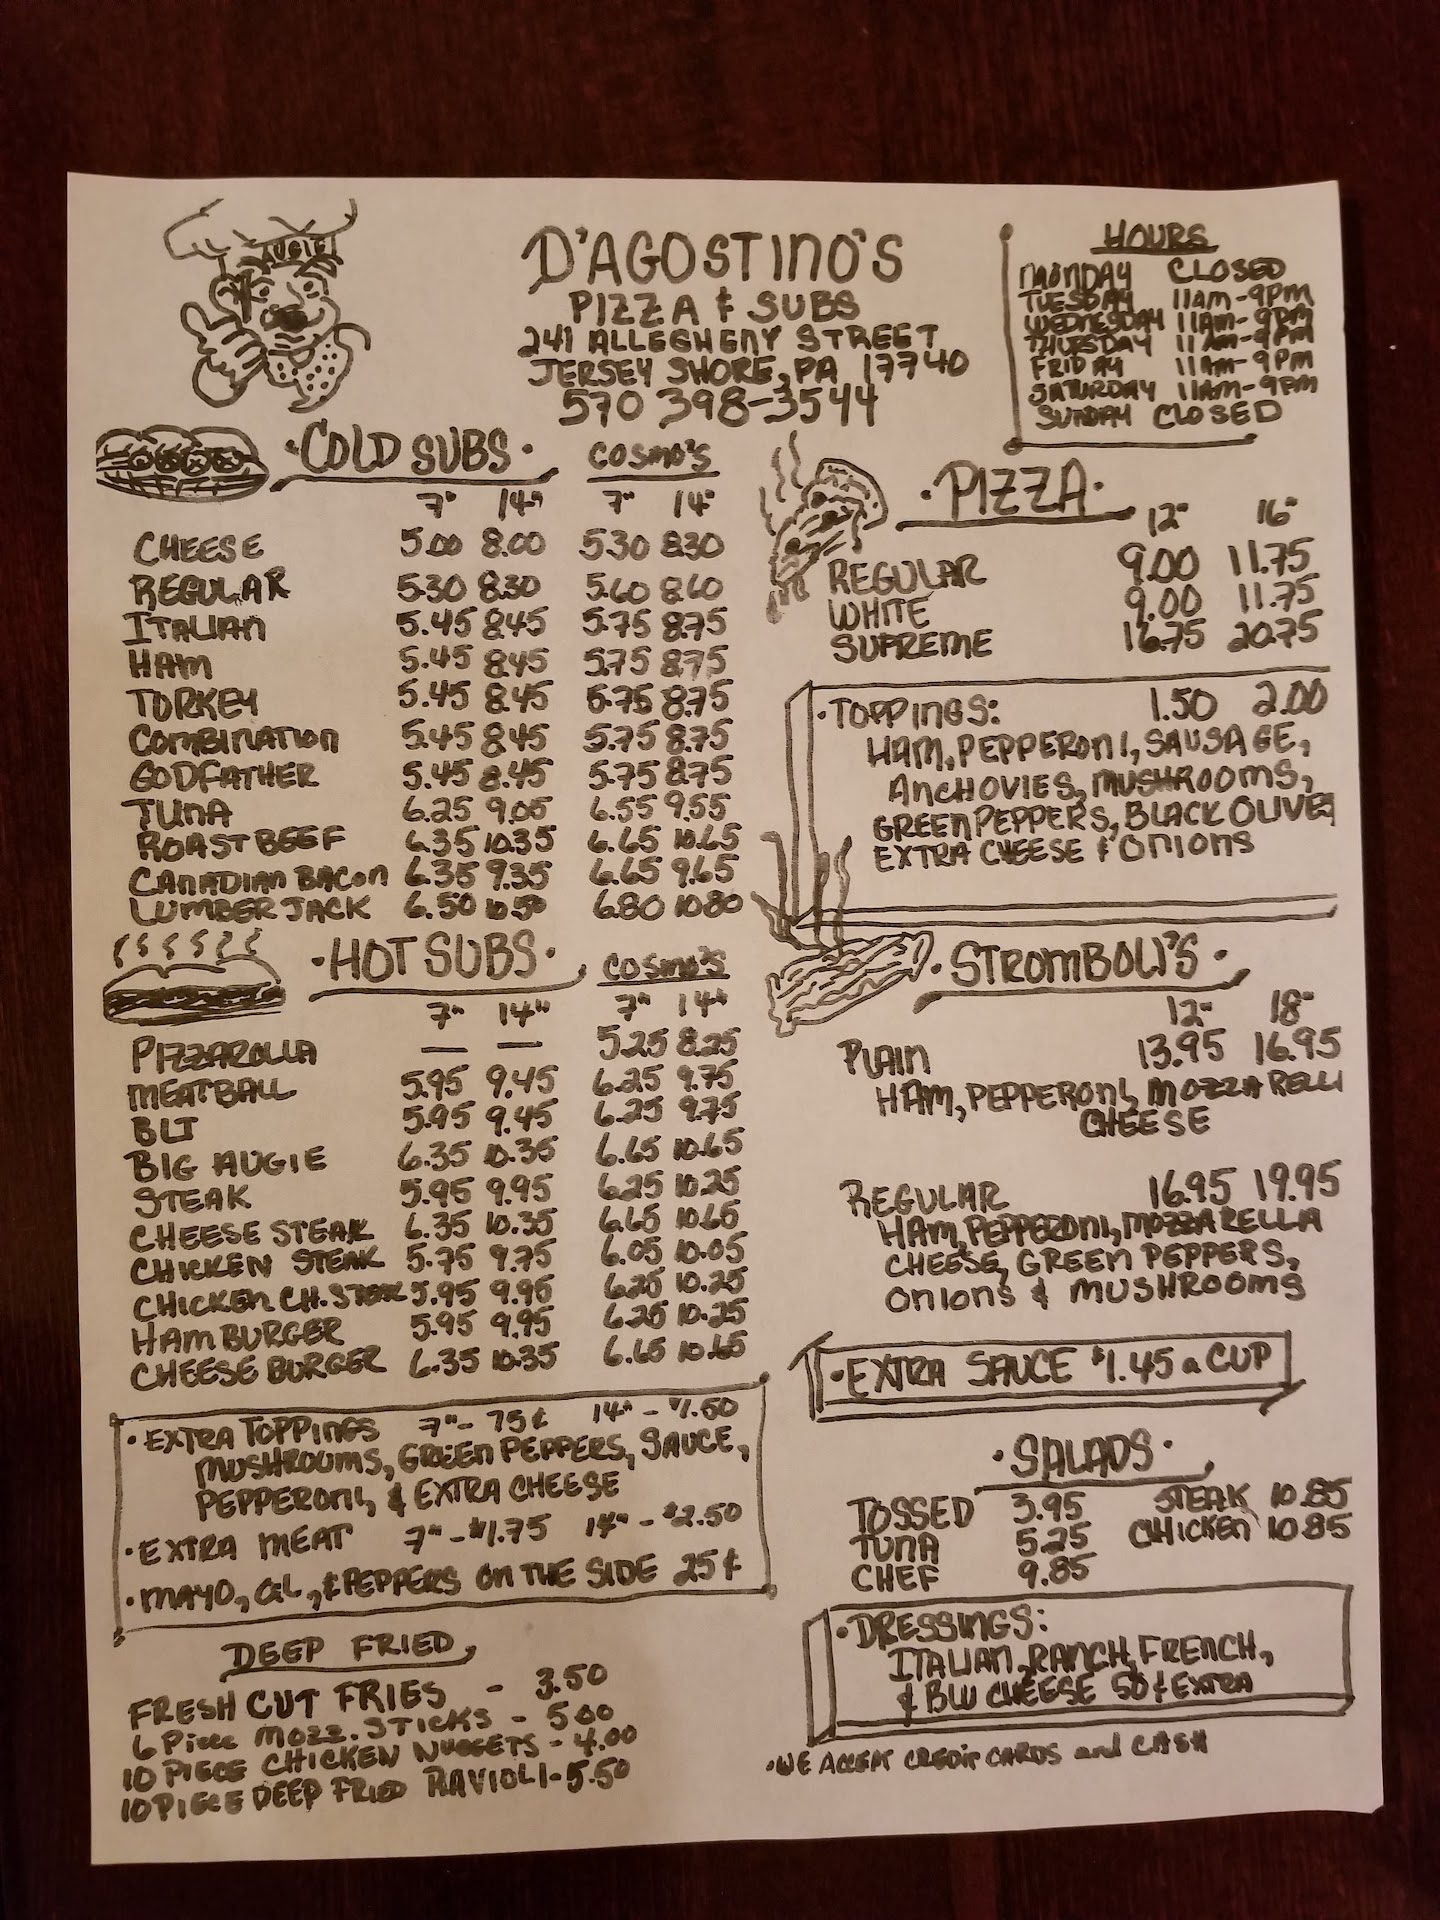 AUGIE
D'AGOSTINO'S
PIZZA & SUBS
241 ALLEGHENY STREET
JERSEY SHORE, PA 17740
570 398-3544
HOURS
MONDAY CLOSED
TUESDAY 11AM-9PM
WEDNESDAY 11AM-9PM
THURSDAY 11AM-9PM
FRIDAY 11AM-9PM
SATURDAY 11AM-9PM
SUNDAY CLOSED
·COLD SUBS· COSMO'S
7" 14" 7" 14"
CHEESE 5.00 8.00 5.30 8.30
REGULAR 5.30 8.30 5.60 8.60
ITALIAN 5.45 8.45 5.75 8.75
HAM 5.45 8.45 5.75 8.75
TURKEY 5.45 8.45 5.75 8.75
COMBINATION 5.45 8.45 5.75 8.75
GODFATHER 5.45 8.45 5.75 8.75
TUNA 6.25 9.05 6.55 9.55
ROAST BEEF 6.35 10.35 6.65 10.65
CANADIAN BACON 6.35 9.35 6.65 9.65
LUMBER JACK 6.50 10.50 6.80 10.80
·HOT SUBS· COSMO'S
7" 14" 7" 14"
PIZZAROLLA — — 5.25 8.25
MEATBALL 5.95 9.45 6.25 9.75
BLT 5.95 9.45 6.25 9.75
BIG AUGIE 6.35 10.35 6.65 10.65
STEAK 5.95 9.95 6.25 10.25
CHEESE STEAK 6.35 10.35 6.65 10.65
CHICKEN STEAK 5.75 9.75 6.05 10.05
CHICKEN CH. STEAK 5.95 9.95 6.25 10.25
HAMBURGER 5.95 9.95 6.25 10.25
CHEESE BURGER 6.35 10.35 6.65 10.65
·EXTRA TOPPINGS 7"- 75¢ 14" - $1.50
MUSHROOMS, GREEN PEPPERS, SAUCE,
PEPPERONI, & EXTRA CHEESE
·EXTRA MEAT 7" - $1.75 14" - $2.50
·MAYO, OIL, & PEPPERS ON THE SIDE 25¢
DEEP FRIED
FRESH CUT FRIES - 3.50
6 Piece MOZZ. STICKS - 5.00
10 PIECE CHICKEN NUGGETS - 4.00
10 PIECE DEEP FRIED RAVIOLI - 5.50
·PIZZA·
12" 16"
REGULAR 9.00 11.75
WHITE 9.00 11.75
SUPREME 16.75 20.75
·TOPPINGS: 1.50 2.00
HAM, PEPPERONI, SAUSAGE,
ANCHOVIES, MUSHROOMS,
GREEN PEPPERS, BLACK OLIVES
EXTRA CHEESE & ONIONS
·STROMBOLI'S·
12" 18"
PLAIN 13.95 16.95
HAM, PEPPERONI, MOZZARELLI
CHEESE
REGULAR 16.95 19.95
HAM, PEPPERONI, MOZZARELLA
CHEESE, GREEN PEPPERS,
ONIONS & MUSHROOMS
·EXTRA SAUCE $1.45 a CUP
·SALADS·
TOSSED 3.95 STEAK 10.85
TUNA 5.25 CHICKEN 10.85
CHEF 9.85
·DRESSINGS:
ITALIAN, RANCH, FRENCH,
& BLU CHEESE 50¢ EXTRA
·WE ACCEPT CREDIT CARDS and CASH